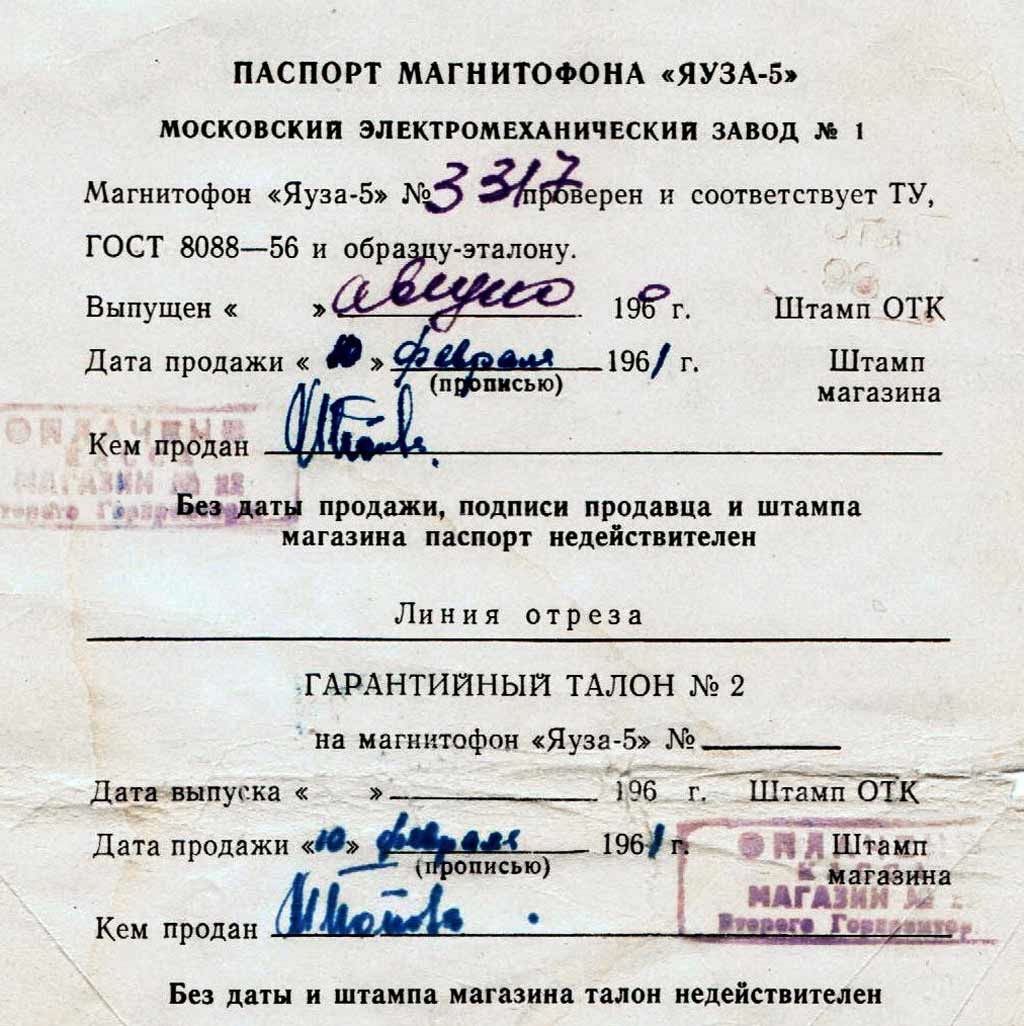 ПАСПОРТ МАГНИТОФОНА «ЯУЗА-5»
МОСКОВСКИЙ ЭЛЕКТРОМЕХАНИЧЕСКИЙ ЗАВОД № 1
Магнитофон «Яуза-5» № 3317 проверен и соответствует ТУ,
ГОСТ 8088—56 и образцу-эталону.
Выпущен « » август 1960 г. Штамп ОТК
Дата продажи « 10 » февраля 1961 г. Штамп
(прописью) магазина
Кем продан
МАГАЗИН №
Второго
Без даты продажи, подписи продавца и штампа
магазина паспорт недействителен
Линия отреза
ГАРАНТИЙНЫЙ ТАЛОН № 2
на магнитофон «Яуза-5» №
Дата выпуска « » 196 г. Штамп ОТК
Дата продажи «10» февраля 1961 г. Штамп
(прописью) магазина
Кем продан
МАГАЗИН №
Второго
Без даты и штампа магазина талон недействителен